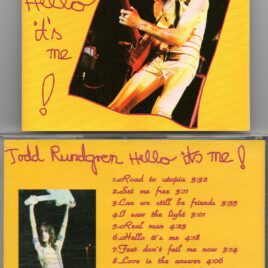 Hello
it's
me
!
Todd Rundgren Hello it's me !
1.Road to utopia 3:32
2.Set me free 3:11
3.Can we still be friends 3:55
4.I saw the light 3:01
5.Real man 4:23
6.Hello it's me 4:18
7.Feet don't fail me now 3:14
8.Love is the answer 4:06